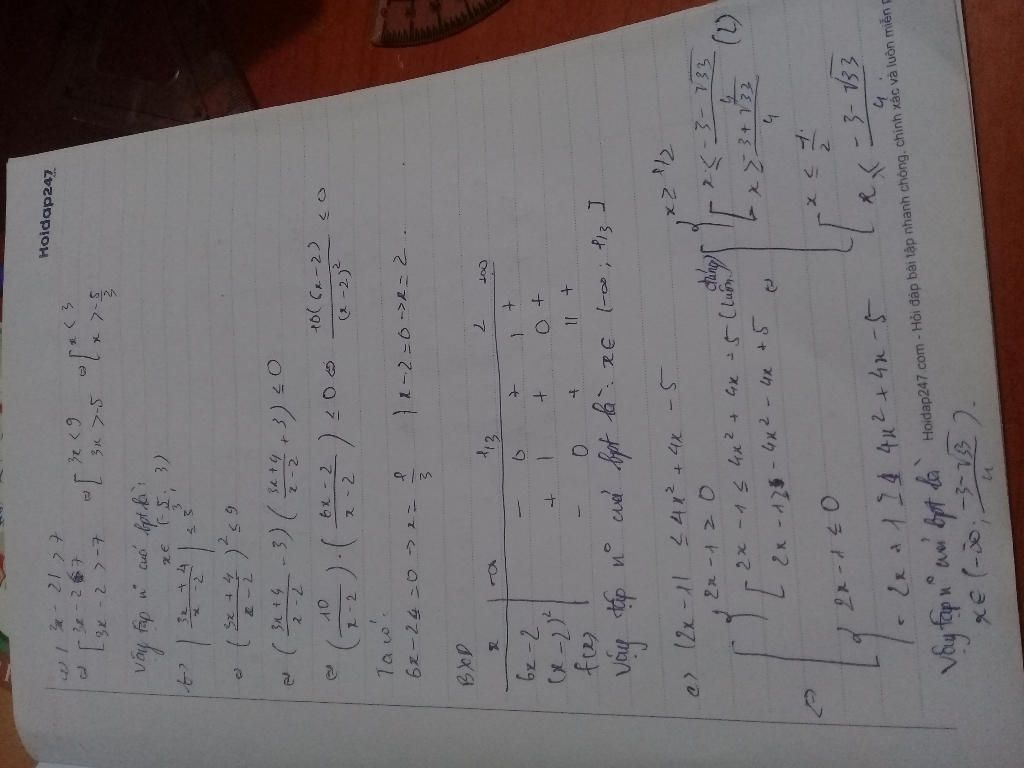 Hoidap247
a) | 3x - 2 | > 7
⇔ [ 3x - 2 < 7 ⇔ [ 3x < 9 ⇔ [ x < 3
[ 3x - 2 > -7 [ 3x > -5 [ x > -5/3
Vậy tập n° của bpt là:
x ∈ (-5/3; 3)
b) | (3x+4)/(x-2) | ≤ 3
⇔ ((3x+4)/(x-2))² ≤ 9
⇔ ((3x+4)/(x-2) - 3)((3x+4)/(x-2) + 3) ≤ 0
⇔ (10/(x-2)) . ((6x-2)/(x-2)) ≤ 0 ⇔ 10(6x-2)/(x-2)² ≤ 0
Ta có:
6x - 2 = 0 → x = 1/3 | x - 2 = 0 → x = 2
BXD
x -∞ 1/3 2 +∞
6x - 2 - 0 + | +
(x-2)² + | + 0 +
f(x) - 0 + || +
Vậy tập n° của bpt là: x ∈ (-∞; 1/3]
c) |2x - 1| ≤ 4x² + 4x - 5
2x - 1 ≥ 0
x ≥ 1/2
2x - 1 ≤ 4x² + 4x - 5 (luôn đúng)
2x - 1 ≥ - 4x² - 4x + 5 ⇔
x ≤ (-3-√33)/4 (L)
x ≥ (-3+√33)/4
⇔
2x - 1 ≤ 0
x ≤ 1/2
- 2x + 1 ≤ 4x² + 4x - 5
x ≤ (-3-√33)/4
Vậy tập n° của bpt là
x ∈ (-∞; (-3-√33)/4).
Hoidap247.com - Hỏi đáp bài tập nhanh chóng, chính xác và luôn miễn p